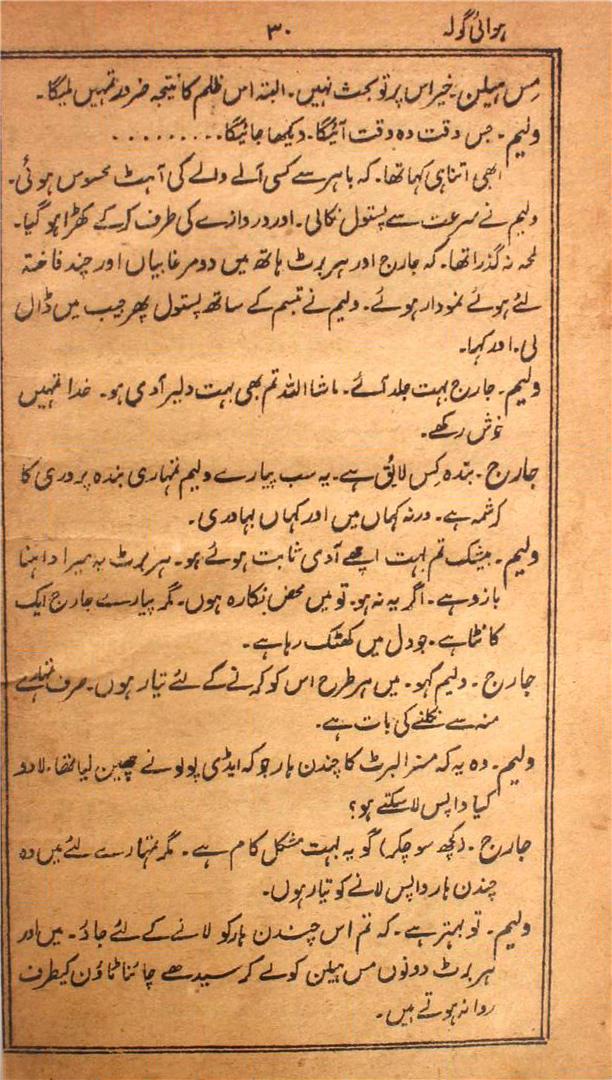 ہوائی گولہ
۳۰
مس ہیلن۔ خیر اس پر تو بحث نہیں۔ البتہ اس ظلم کا نتیجہ ضرور تمہیں ملیگا۔
ولیم۔ جس وقت وہ وقت آئیگا۔ دیکھا جائیگا.........
ابھی اتنا ہی کہا تھا۔ کہ باہر سے کسی آنے والے کی آہٹ محسوس ہوئی۔
ولیم نے سرعت سے پستول نکالی۔ اور دروازے کی طرف کر کے کھڑا ہو گیا۔
لمحہ نہ گذرا تھا۔ کہ جارج اور ہربرٹ ہاتھ میں دو مرغابیاں اور چند فاختہ
لئے ہوئے نمودار ہوئے۔ ولیم نے تبسم کے ساتھ پستول پھر جیب میں ڈال
لی۔ اور کہا۔
ولیم۔ جارج بہت جلد آئے۔ ماشا اللہ تم بھی بہت دلیر آدمی ہو۔ خدا تمہیں
خوش رکھے۔
جارج۔ بندہ کس لائق ہے۔ یہ سب پیارے ولیم تمہاری بندہ پروری کا
کرشمہ ہے۔ ورنہ کہاں میں اور کہاں بہادری۔
ولیم۔ بیشک تم بہت اچھے آدمی ثابت ہوئے ہو۔ ہربرٹ یہ میرا داہنا
بازو ہے۔ اگر یہ نہ ہو۔ تو میں محض نکارہ ہوں۔ مگر پیارے جارج ایک
کانٹا ہے۔ جو دل میں کھٹک رہا ہے۔
جارج۔ ولیم کہو۔ میں ہر طرح اس کو کرنے کے لئے تیار ہوں۔ صرف تمہارے
منہ سے نکلنے کی بات ہے۔
ولیم۔ وہ یہ کہ مسٹر البرٹ کا چندن ہار جو کہ ایڈی پولو نے چھین لیا تھا۔ لادو
کیا واپس لا سکتے ہو؟
جارج۔ (کچھ سوچکر) گو یہ بہت مشکل کام ہے۔ مگر تمہارے لئے میں وہ
چندن ہار واپس لانے کو تیار ہوں۔
ولیم۔ تو بہتر ہے۔ کہ تم اس چندن ہار کو لانے کے لئے جاؤ۔ میں اور
ہربرٹ دونوں مس ہیلن کو لے کر سیدھے چائنا ٹاؤن کیطرف
روانہ ہوتے ہیں۔